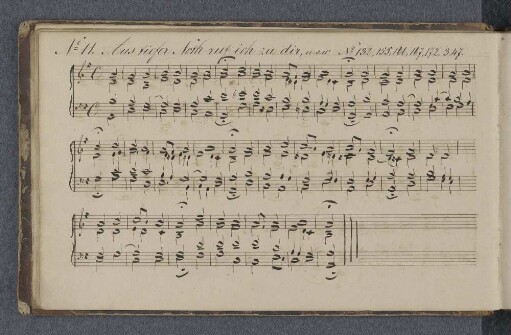 No 11. Aus tiefer Noth ruf ich zu dir, usw No 132, 155, 161, 167, 172, 347.